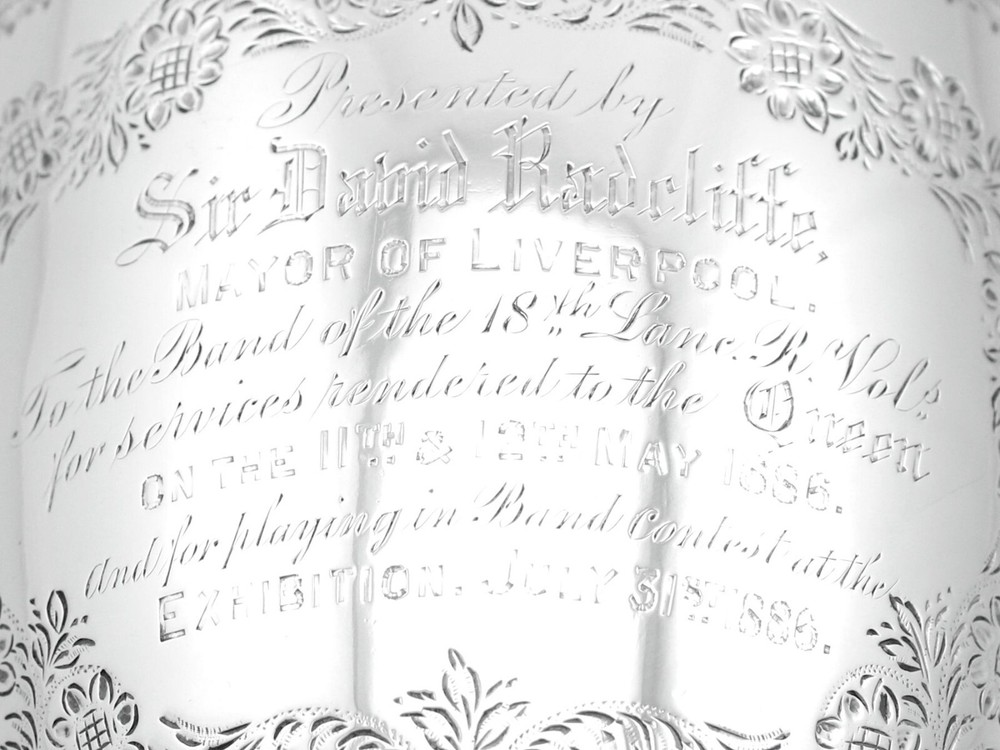 Presented by
Sir David Radcliffe,
MAYOR OF LIVERPOOL.
To the Band of the 18th Lanc. R. Vols
for services rendered to the Queen
ON THE 11TH & 12TH MAY 1886.
and for playing in Band Contest at the
EXHIBITION. JULY 31ST 1886.